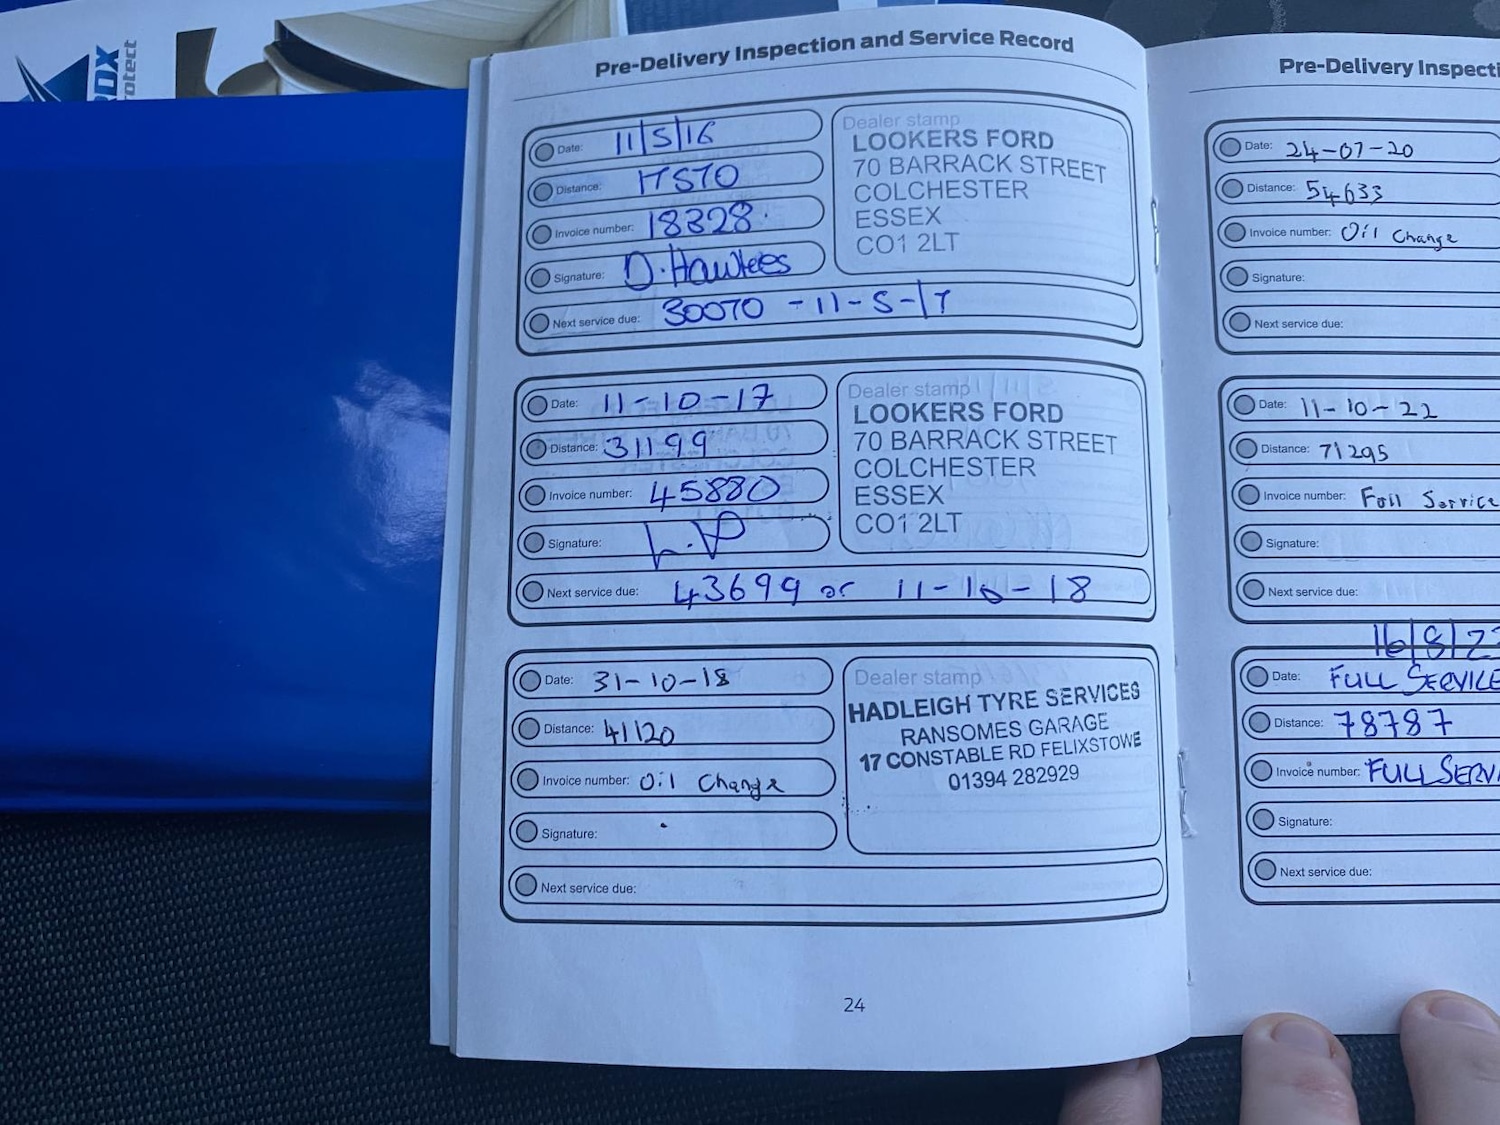 Pre-Delivery Inspection and Service Record
Date: 11/5/16
Distance: 17570
Invoice number: 18328.
Signature: D. Hawkes
Next service due: 30070 - 11-5-17
Dealer stamp
LOOKERS FORD
70 BARRACK STREET
COLCHESTER
ESSEX
CO1 2LT
Date: 11-10-17
Distance: 31199
Invoice number: 45880
Signature:
Next service due: 43699 or 11-10-18
Dealer stamp
LOOKERS FORD
70 BARRACK STREET
COLCHESTER
ESSEX
CO1 2LT
Date: 31-10-18
Distance: 41120
Invoice number: Oil Change
Signature:
Next service due:
Dealer stamp
HADLEIGH TYRE SERVICES
RANSOMES GARAGE
17 CONSTABLE RD FELIXSTOWE
01394 282929
24
Pre-Delivery Inspecti
Date: 24-07-20
Distance: 54633
Invoice number: Oil Change
Signature:
Next service due:
Date: 11-10-22
Distance: 71295
Invoice number: Foll Service
Signature:
Next service due:
16/8/23
Date: FULL SERVICE
Distance: 78787
Invoice number: FULL SERVI
Signature:
Next service due:
otect